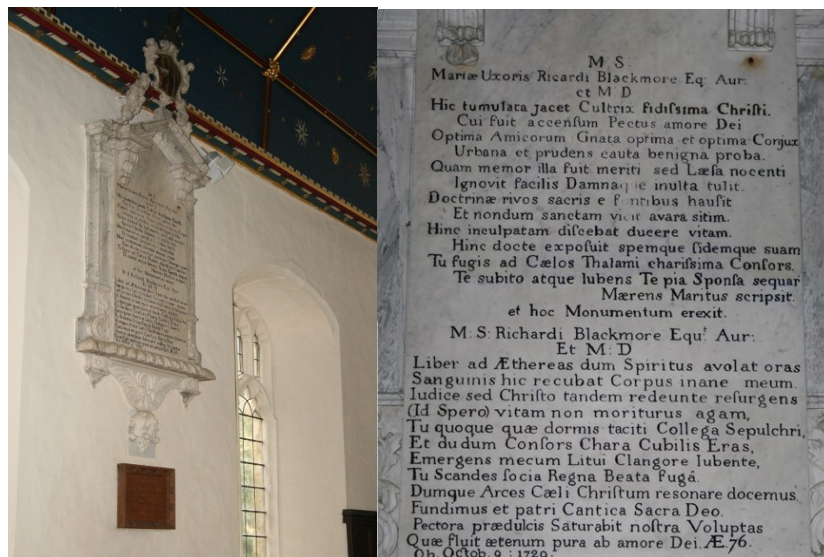 M S:
Mariæ Uxoris Ricardi Blackmore Eq: Aur:
et M D
Hic tumulata jacet Cultrix fidiſsima Chriſti.
Cui fuit accenſum Pectus amore Dei
Optima Amicorum Gnata optima et optima Conjux
Urbana et prudens cauta benigna proba.
Quam memor illa fuit meriti sed Læſa nocenti
Ignovit facilis Damna inulta tulit.
Doctrinæ rivos sacris e hauſit
Et nondum sanctam avara sitim.
Hinc inculpatam diſcebat ducere vitam.
Hinc docte expoſuit spemque fidemque suam
Tu fugis ad Cælos Thalami chariſsima Conſors.
Te subito atque lubens Te pia Sponſa sequar
Mærens Maritus scripsit.
et hoc Monumentum erexit.
M: S: Richardi Blackmore Equ:t Aur:
Et M: D
Liber ad Æthereas dum Spiritus avolat oras
Sanguinis hic recubat Corpus inane meum.
Iudice sed Chriſto tandem redeunte reſurgens
(Id Spero) vitam non moriturus agam,
Tu quoque quæ dormis taciti Collega Sepulchri,
Et dudum Conſors Chara Cubilis Eras,
Emergens mecum Litui Clangore Iubente,
Tu Scandes ſocia Regna Beata fugâ.
Dumque Arces Cæli Chriſtum resonare docemus,
Fundimus et patri Cantica Sacra Deo.
Pectora prædulcis Saturabit noſtra Voluptas
Quæ fluit ætenum pura ab amore Dei. Æ. 76.
Ob. Octob. 9 : 1729.